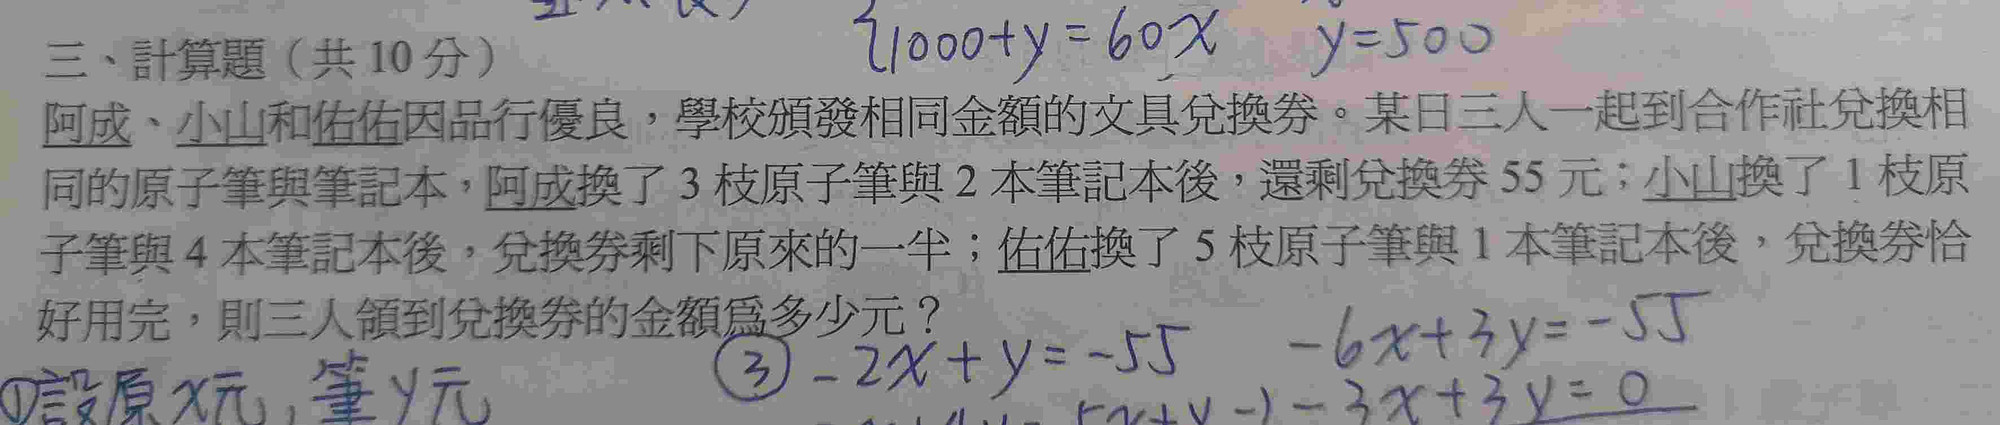 {1000+y=60x y=500
三、計算題（共 10 分）
阿成、小山和佑佑因品行優良，學校頒發相同金額的文具兌換券。某日三人一起到合作社兌換相
同的原子筆與筆記本，阿成換了 3 枝原子筆與 2 本筆記本後，還剩兌換券 55 元；小山換了 1 枝原
子筆與 4 本筆記本後，兌換券剩下原來的一半；佑佑換了 5 枝原子筆與 1 本筆記本後，兌換券恰
好用完，則三人領到兌換券的金額為多少元？
③ -2x+y=-55 -6x+3y=-55
①設原x元，筆y元 -3x+3y=0